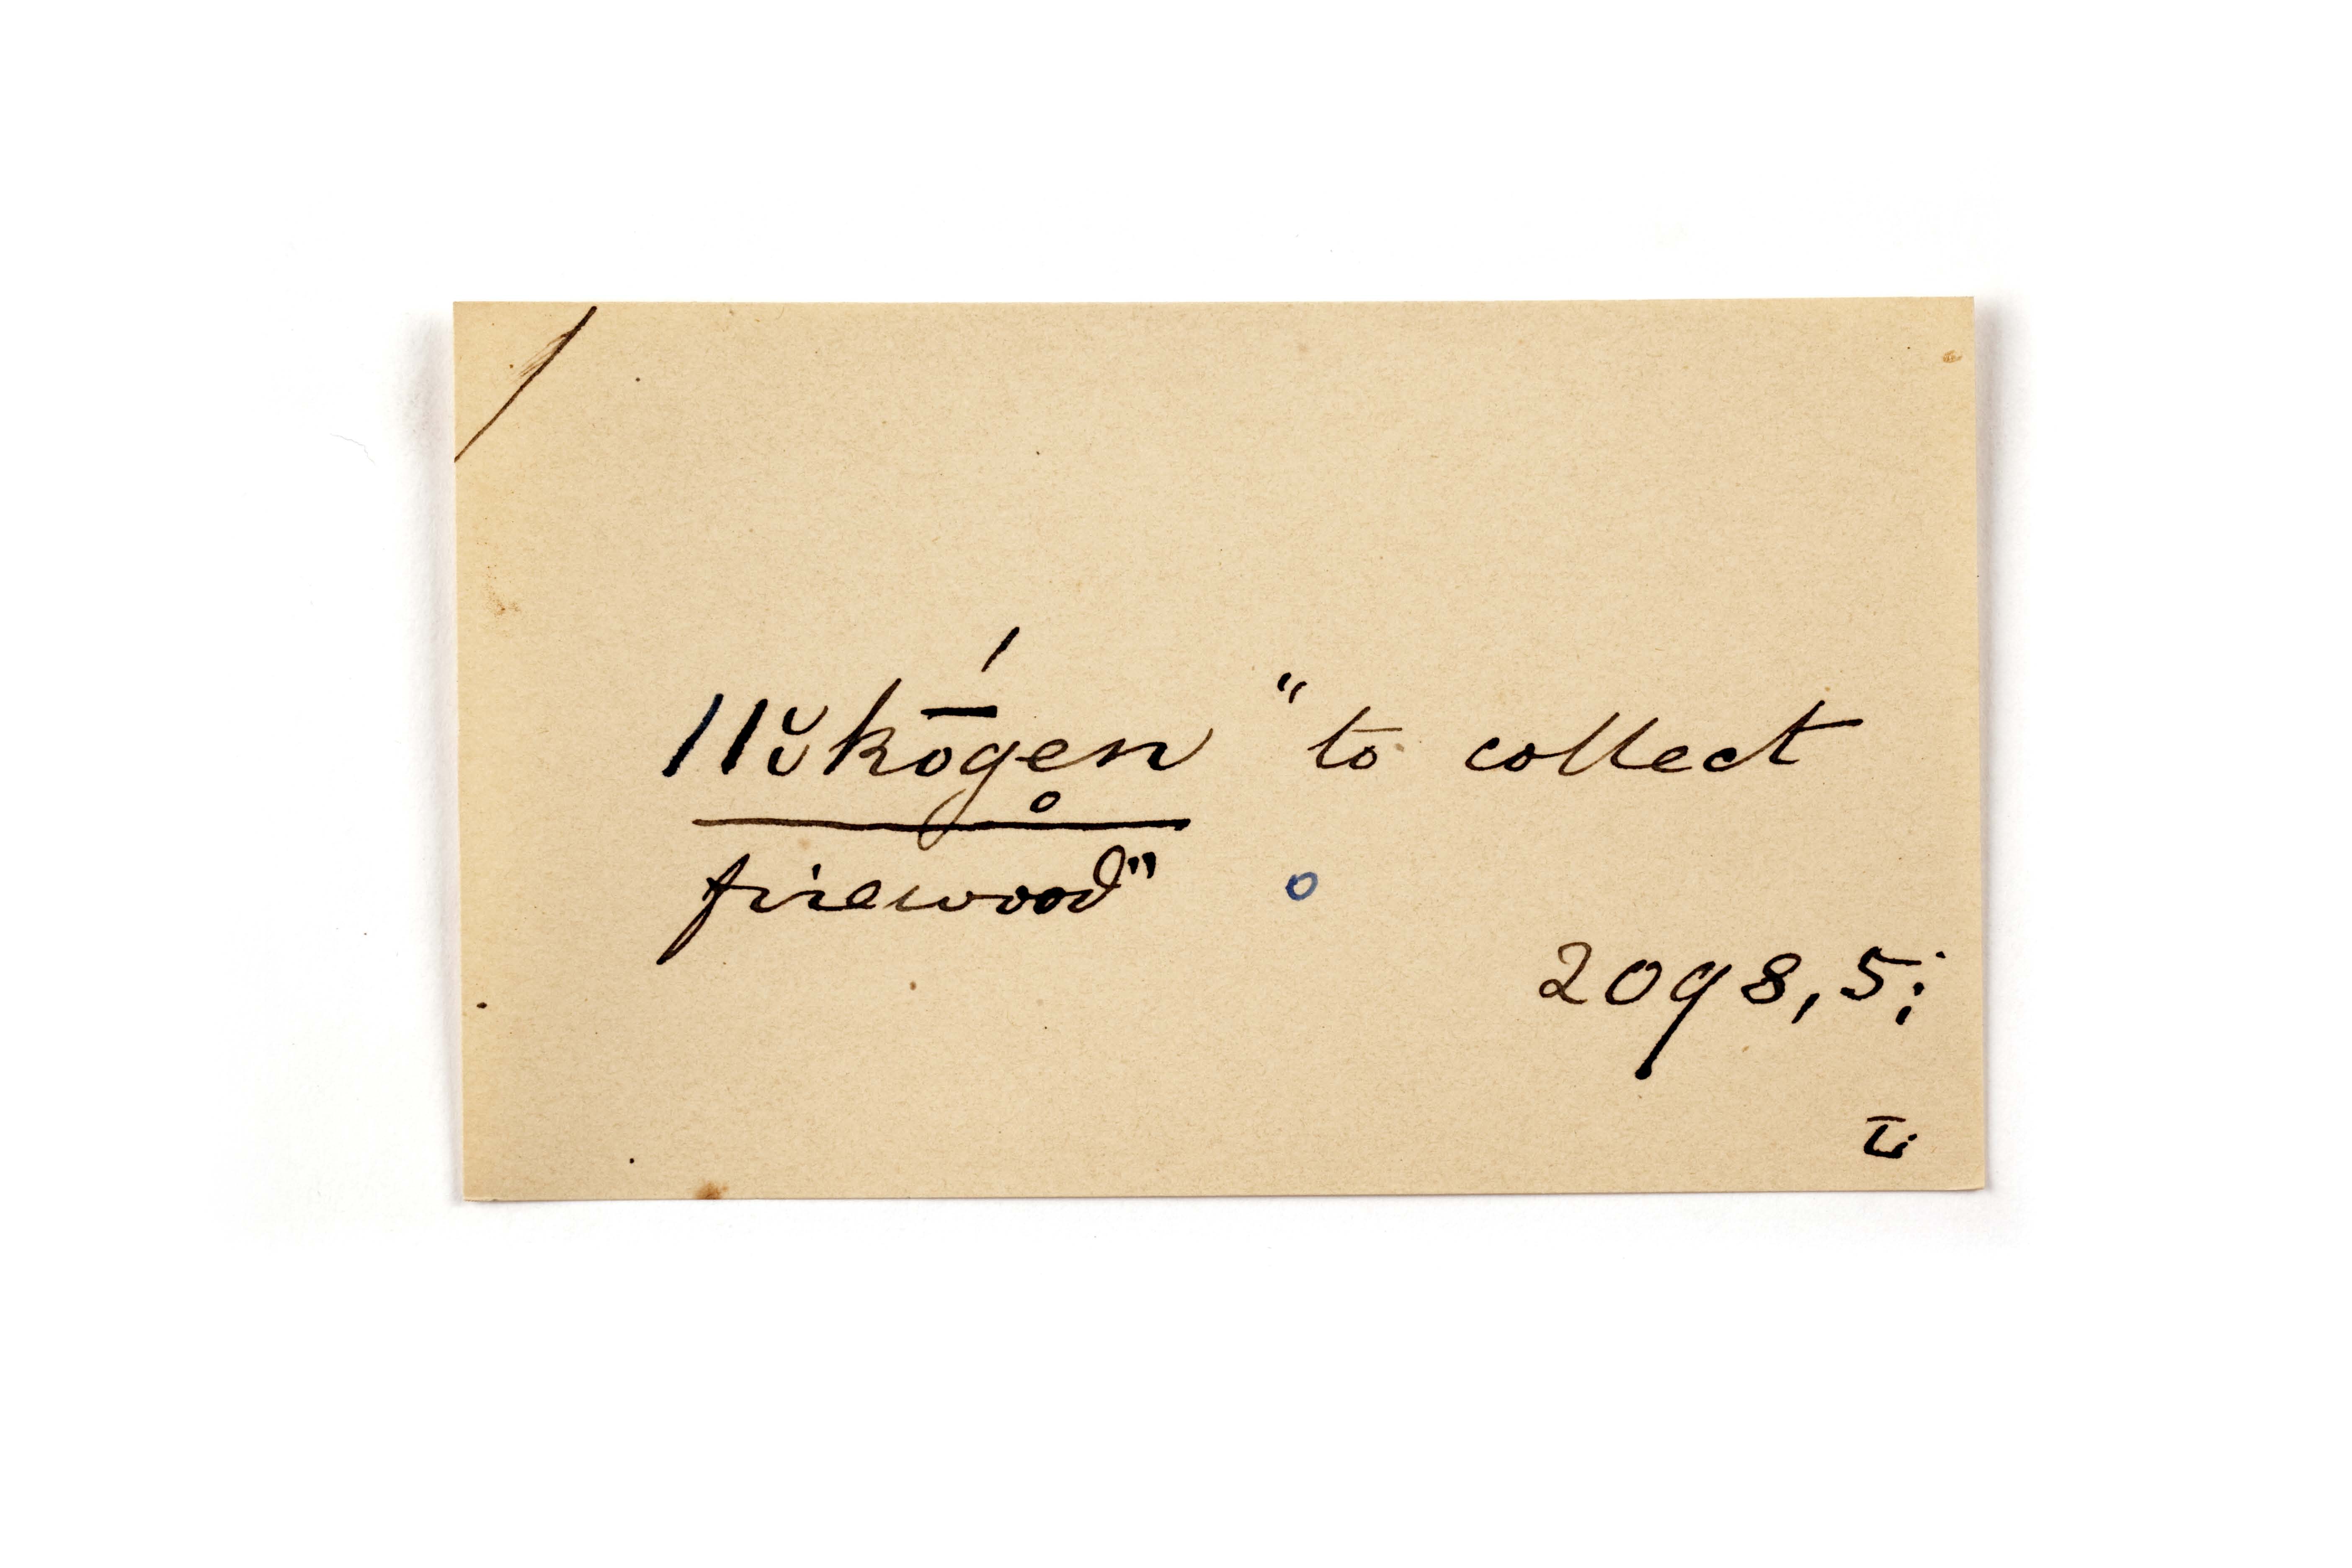 ǁŭkṓge̥n "to collect
firewood"
2098,5;